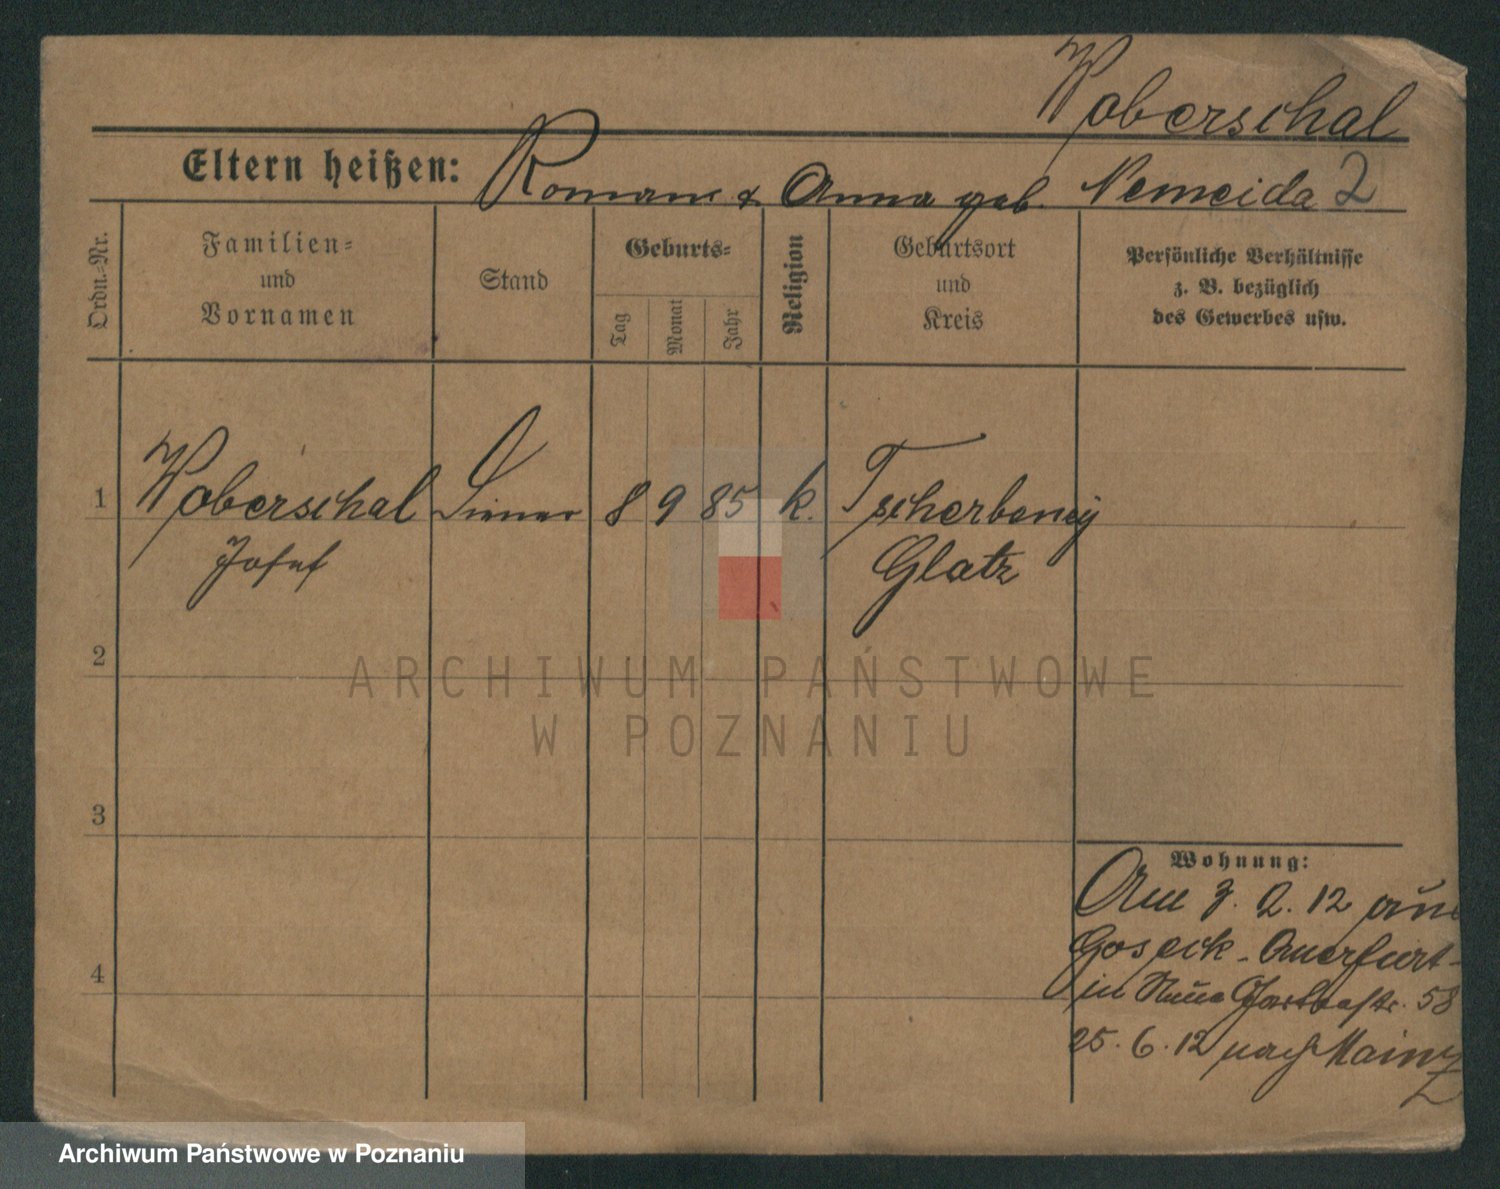 Woberschal
Eltern heißen: Roman & Anna geb. Nemeida 2
Ordn.-Nr.
Familien-
und
Vornamen
Stand
Geburts-
Tag
Monat
Jahr
Religion
Geburtsort
und
Kreis
Persönliche Verhältnisse
z. B. bezüglich
des Gewerbes usw.
1 Woberschal Diener 8 9 85 k. Tscherbeney
Josef Glatz
2
ARCHIWUM PAŃSTWOWE
W POZNANIU
3
Wohnung:
Am 3. 2. 12 aus
Goseck - Querfurt -
in Neue Gartenstr. 58
4
25. 6. 12 nach Mainz
Archiwum Państwowe w Poznaniu